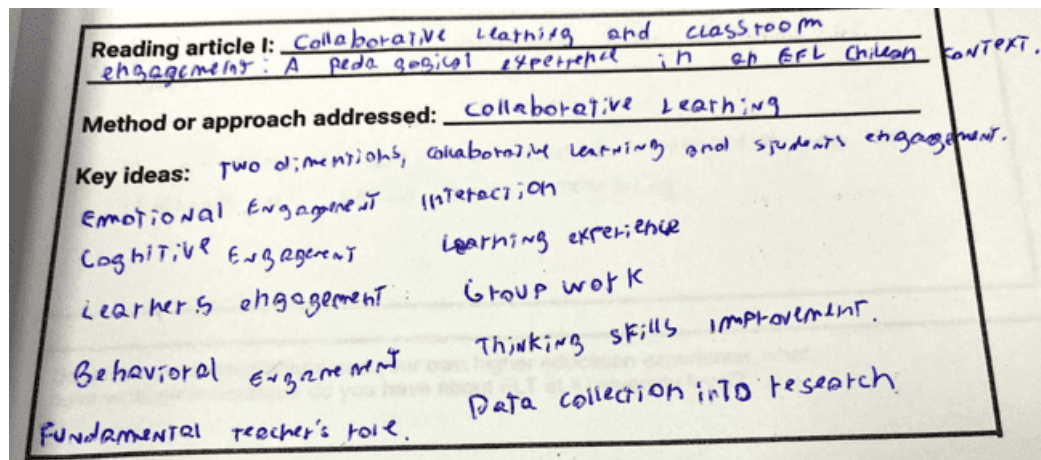 Reading article I: Collaborative Learning and classroom
engagement: A pedagogical experience in an EFL Chilean context.
Method or approach addressed: Collaborative Learning
Key ideas: Two dimentions, collaborative learning and students engagement.
Emotional Engagement Interaction
Cognitive Engagement Learning experience
Learner's engagement Group work
Behavioral Engagement Thinking skills improvement.
Fundamental teacher's role. Data collection into research